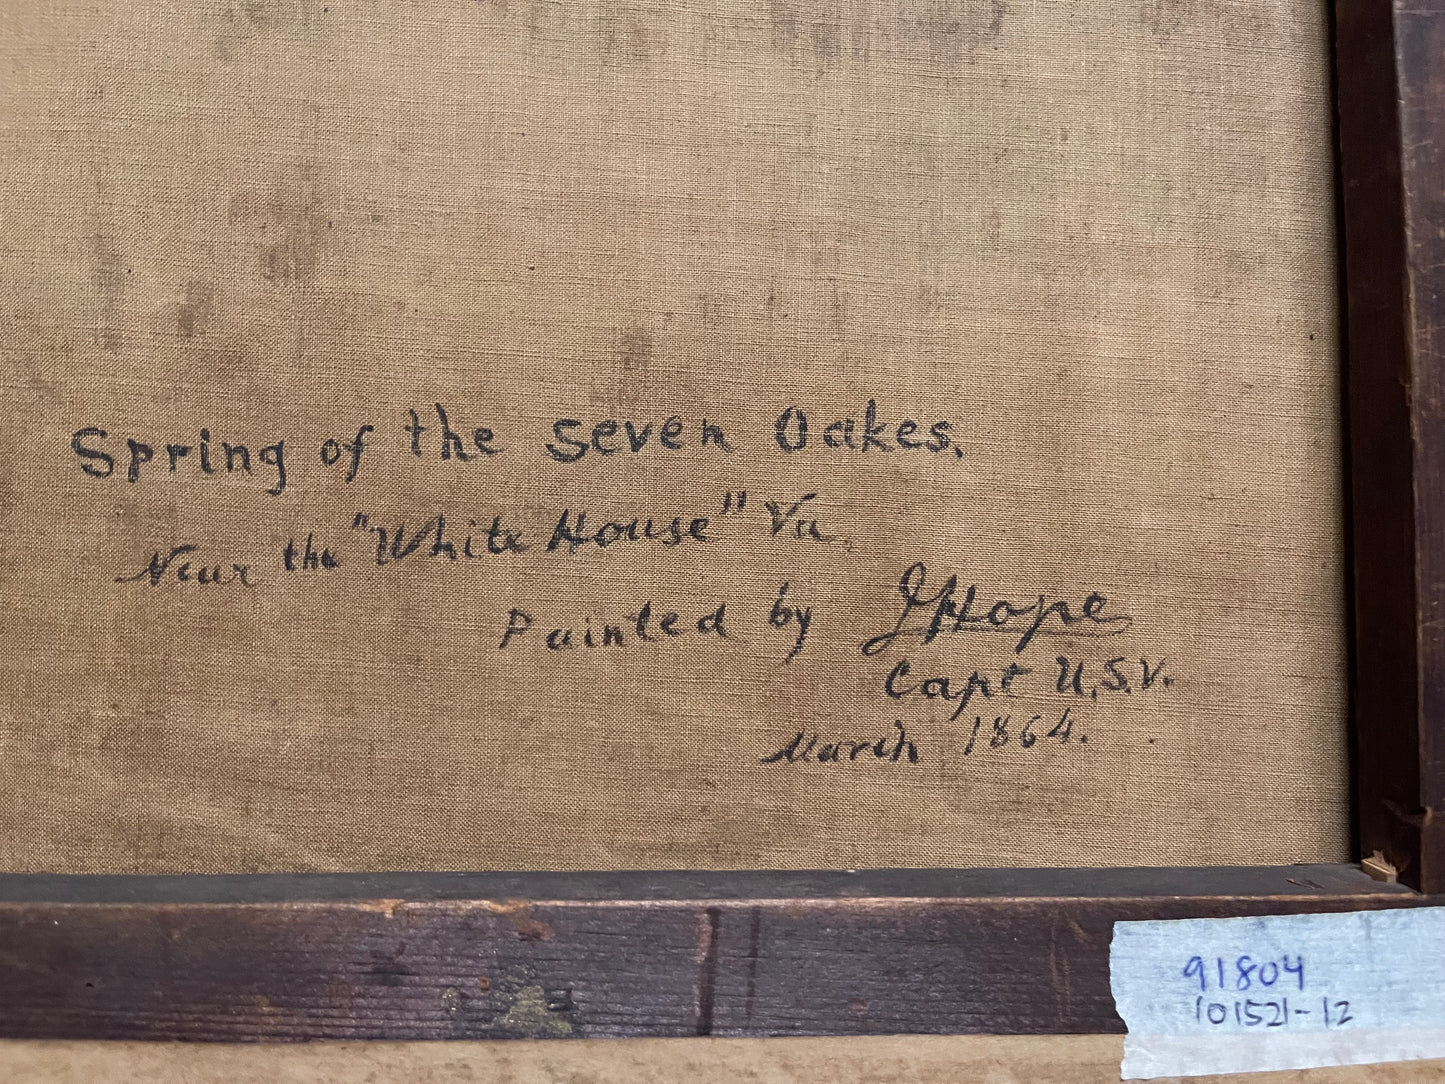 Spring of the Seven Oakes.
Near the "White House" Va.
Painted by J Hope
Capt U.S.V.
March 1864.
91804
101521-12